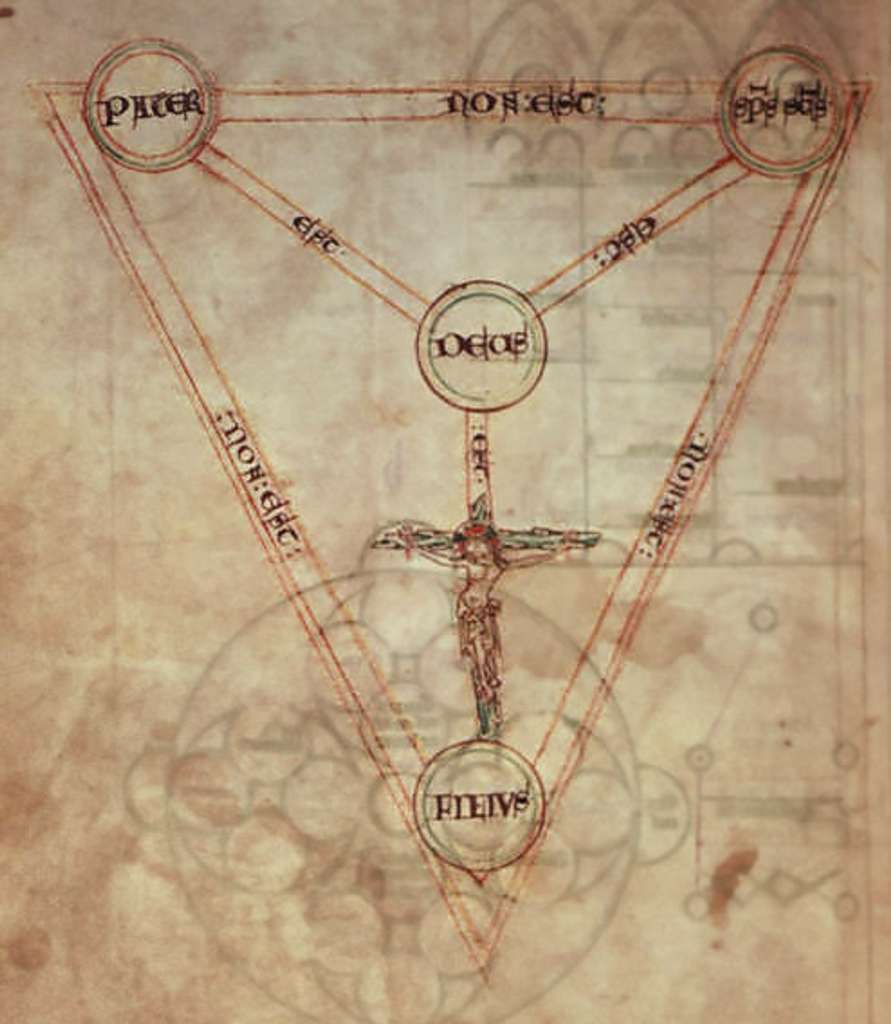 PATER
NON:EST:
SPS SCS
EST
EST:
DEUS
:NON:EST:
EST:
:NON:EST:
FILIVS